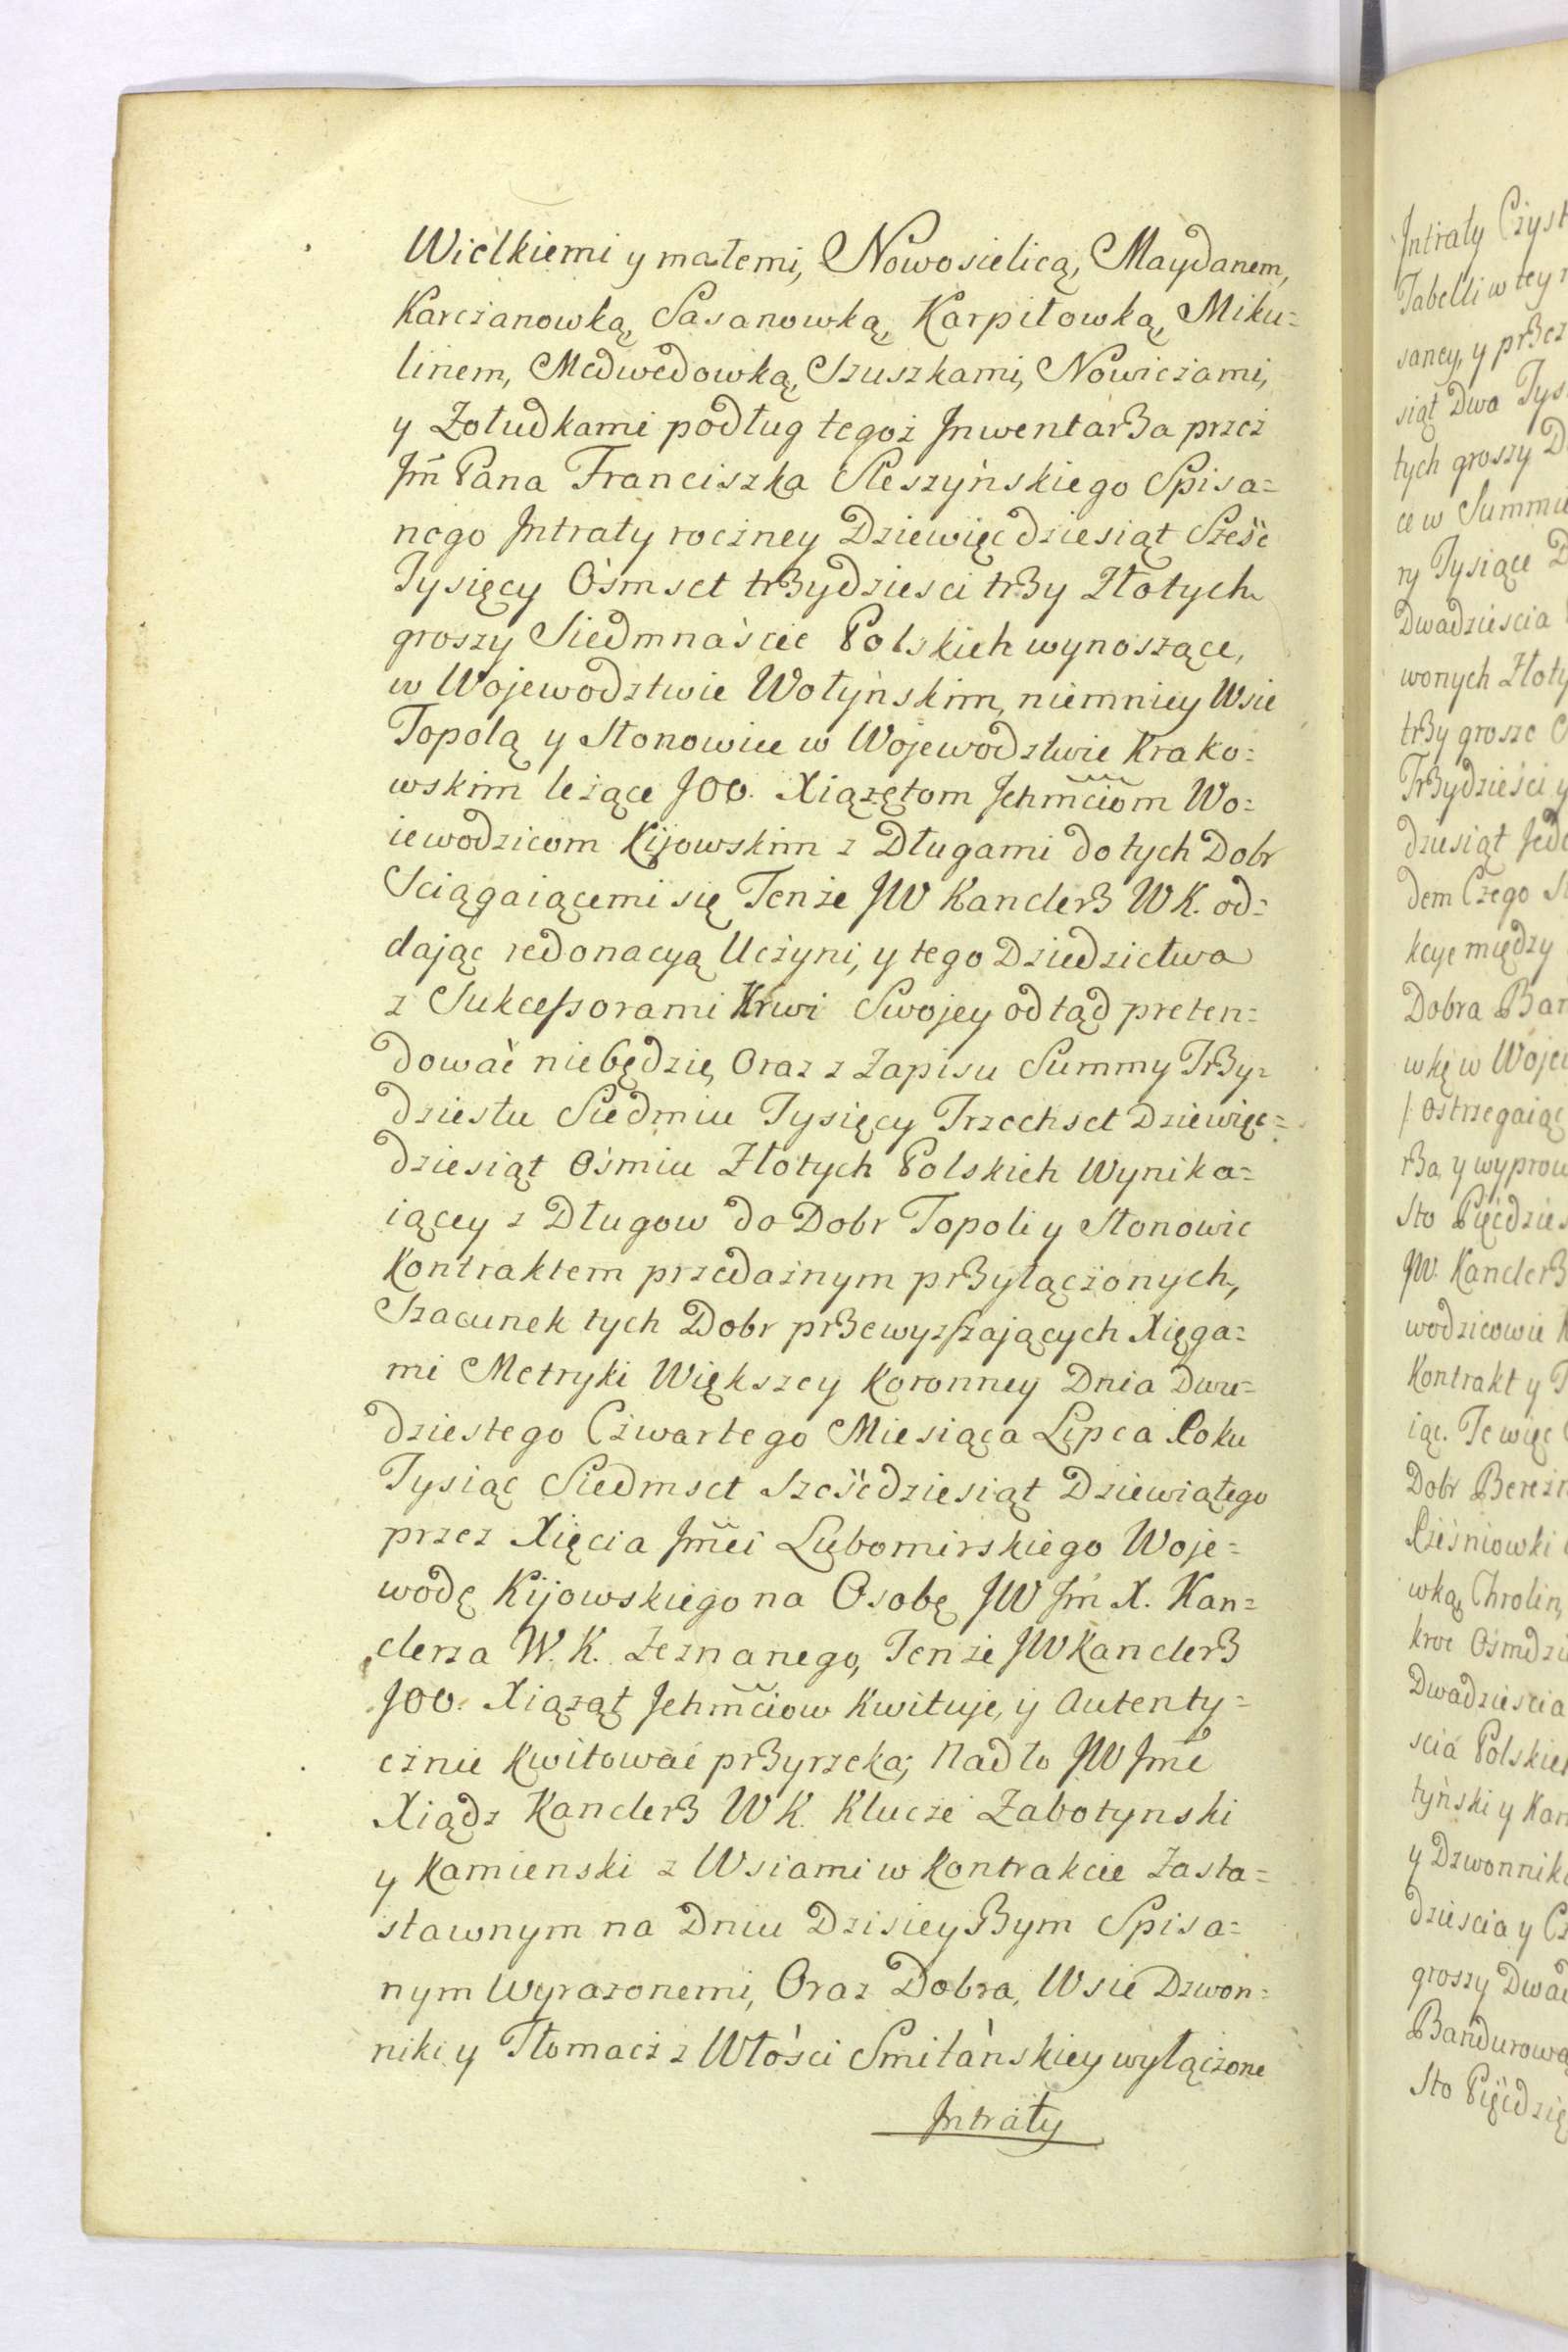 Wielkiemi y małemi, Nowosielicą, Maydanem,
Karczanowką, Sasanowką, Karpiłowką, Miku=
linem, Medwedowką, Szuszkami, Nowiczami,
y Zołudkami podług tegoż Jnwentarza przez
Jm̃ Pana Franciszka Sleszyńskiego Spisa=
nego Jntraty roczney Dziewięcdziesiąt Sześć
Tysięcy Ośmset trzydziesci trzy Złotych
groszy Siedmnaście Polskich wynoszące,
w Wojewodztwie Wołyńskim, niemniey Wsie
Topolą y Stonowice w Wojewodztwie Krako=
wskim leżące JOO. Xiążętom Jchm̃ciom Wo=
iewodzicom Kijowskim z Długami do tych Dobr
Sciągaiącemi się Tenże JW Kanclerz WK. od=
dając redonacyą Uczyni, y tego Dziedzictwa
z Sukcessorami Krwi Swojey odtąd preten=
dować niebędzie, Oraz z Zapisu Summy Trzy=
dziestu Siedmiu Tysięcy Trzechset Dziewięc=
dziesiąt Ośmiu Złotych Polskich Wynika=
iącey z Długow do Dobr Topoli y Stonowic
Kontraktem przedażnym przyłączonych,
Szacunek tych Dobr przewyzszających Xięga=
mi Metryki Większey Koronney Dnia Dwu=
dziestego Czwartego Miesiąca Lipca Roku
Tysiąc Siedmset Sześćdziesiąt Dziewiątego
przez Xięcia Jm̃ci Lubomirskiego Woje=
wodę Kijowskiego na Osobę JW Jm̃ X. Kan=
clerza W. K. Zeznanego, Tenże JW Kanclerz
JOO. Xiążąt Jchm̃ciow Kwituje, y Autenty=
cznie Kwitować przyrzeka; Nadto JW Jm̃ć
Xiądz Kanclerz WK. Klucze Zabotynski
y Kamienski z Wsiami w Kontrakcie Zasta=
stawnym na Dniu Dzisieyszym Spisa=
nym Wyrazonemi, Oraz Dobra, Wsie Dzwon=
niki y Tłomacz z Włości Smilańskiey wyłączone
Jntraty
Jntraty Czyst
Tabelli w tey
saney, y przez
siąt Dwa Tys
tych groszy D
ce w Summie
ry Tysiące D
Dwadziescia
wonych Złoty
trzy grosze
Trzydzieści y
dziesiąt Jed
dem Czego
kcye między
Dobra Ban
wkę w Wojew
/: Ostrzegaiąc
rza, y wyprow
Sto Pięćdzies
JW. Kanclerz
wodzicowie K
Kontrakt y
iąc. Te więc
Dobr Berezn
wką, Chrolin,
kroc Ośmdzie
Dwadziescia
scia Polskich
tyński y Kam
y Dzwonniki
dziescia y Cz
groszy Dwad
Bandurowa
Sto Pięćdzie